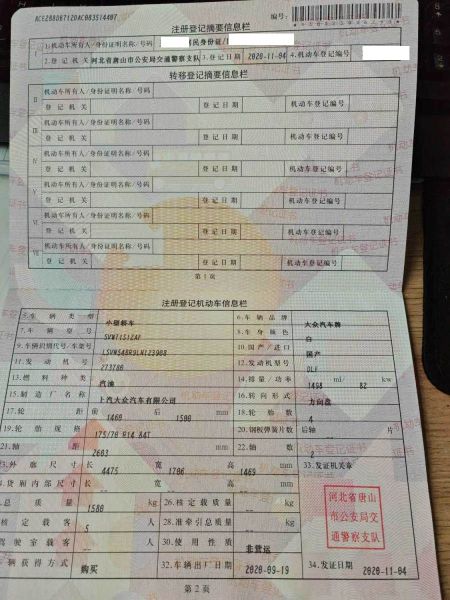 注册登记摘要信息栏
编号:
1.机动车所有人/身份证明名称/号码 民身份证/
3.登记机关 河北省唐山市公安局交通警察支队 3.登记日期 2020-11-04 4.机动车登记编号
转移登记摘要信息栏
II 机动车所有人/身份证明名称/号码
登记机关 登记日期 机动车登记编号
III 机动车所有人/身份证明名称/号码
登记机关 登记日期 机动车登记编号
IV 机动车所有人/身份证明名称/号码
登记机关 登记日期 机动车登记编号
V 机动车所有人/身份证明名称/号码
登记机关 登记日期 机动车登记编号
VI 机动车所有人/身份证明名称/号码
登记机关 登记日期 机动车登记编号
VII 机动车所有人/身份证明名称/号码
登记机关 登记日期 机动车登记编号
第1页
注册登记机动车信息栏
5.车辆类型 小型轿车 6.车辆品牌 大众汽车牌
7.车辆型号 8.车身颜色 白
9.车辆识别代号/车架号 10.国产/进口 国产
11.发动机号 273786 12.发动机型号 DLF
13.燃料种类 汽油 14.排量/功率 1498 ml/ 82 kw
15.制造厂名称 上汽大众汽车有限公司 16.转向形式 方向盘
17.轮距 前 1460 后 1500 mm 18.轮胎数 4
19.轮胎规格 175/70 R14 84T 20.钢板弹簧片数 后轴 -- 片
21.轴距 2603 mm 22.轴数 2
23.外廓尺寸 长 4475 宽 1706 高 1469 mm 33.发证机关章
24.货厢内部尺寸 长 -- 宽 -- 高 -- mm
总质量 1580 kg 26.核定载质量 -- kg
核定载客 5 人 28.准牵引总质量 -- kg
驾驶室载客 -- 人 30.使用性质 非营运
车辆获得方式 购买 32.车辆出厂日期 2020-09-19 34.发证日期 2020-11-04
河北省唐山
市公安局交
通警察支队
第2页